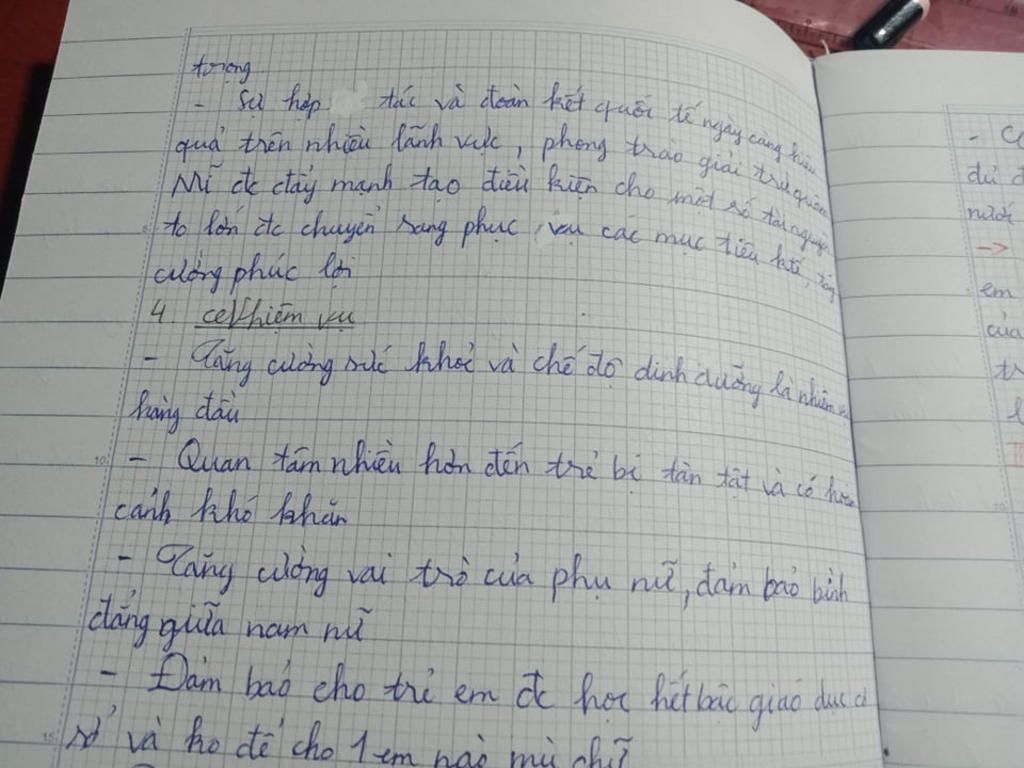 trọng
- Sự hợp tác và đoàn kết quốc tế ngày càng hiệu
quả trên nhiều lãnh vực, phong trào giải trừ quân
Mĩ đc đẩy mạnh tạo điều kiện cho một số tài nguyên
to lớn đc chuyển sang phục vụ các mục tiêu ktế, tăng
cường phúc lợi
4. Nhiệm vụ
- Tăng cường sức khoẻ và chế độ dinh dưỡng là nhiệm vụ
hàng đầu
- Quan tâm nhiều hơn đến trẻ bị tàn tật và có hoàn
cảnh khó khăn
- Tăng cường vai trò của phụ nữ, đảm bảo bình
đẳng giữa nam nữ
- Đảm bảo cho trẻ em đc học hết bậc giáo dục cơ
sở và ko để cho 1 em nào mù chữ
- C
dủ đ
nước
→
em
của
tr